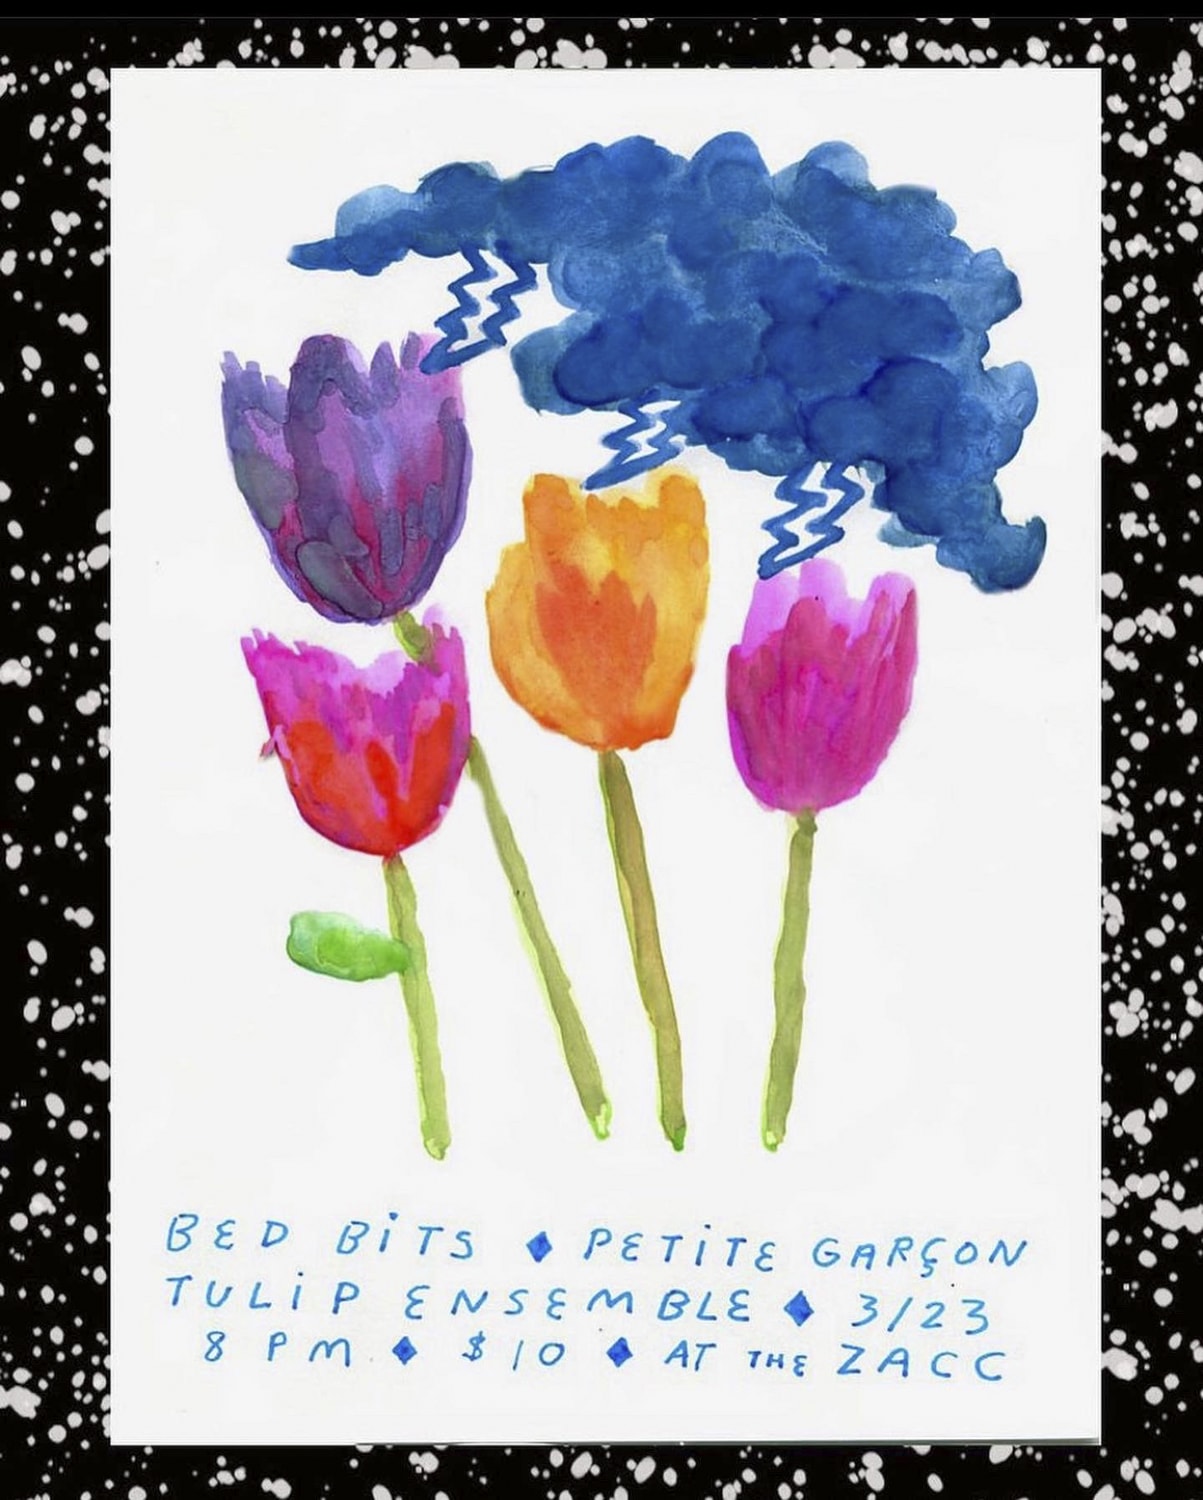 BED BiTS ♦ PETiTE GARÇON
TULiP ENSEMBLE ♦ 3/23
8 PM ♦ $10 ♦ AT THE ZACC